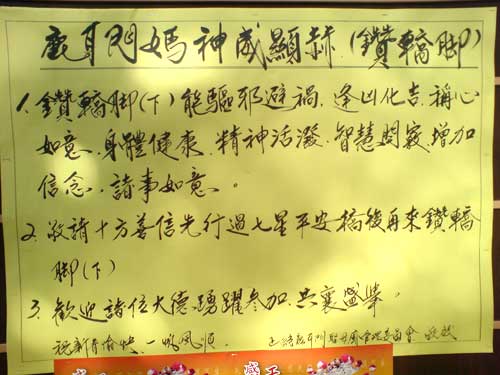 鹿耳門媽神威顯赫(鑽轎脚)
1.鑽轎脚(下)能驅邪避禍、逢凶化吉、稱心
如意、身體健康、精神活潑、智慧開竅、增加
信念、諸事如意。
2.敬請十方善信先行過七星平安橋後再來鑽轎
脚(下)
3.歡迎諸位大德、踴躍參加、共襄盛舉。
祝新春愉快、一帆風順。